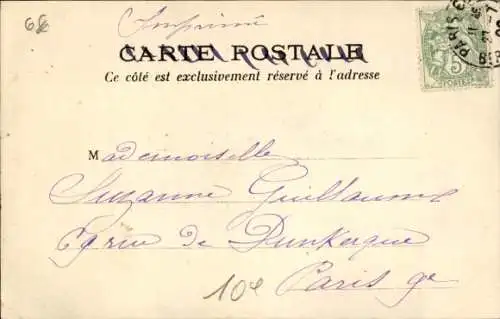 6€
Imprimé
CARTE POSTALE
Ce côté est exclusivement réservé à l'adresse
PARIS
5
POSTES
Mademoiselle
Suzanne Guillaume
rue de Dunkerque
Paris 9e
10e